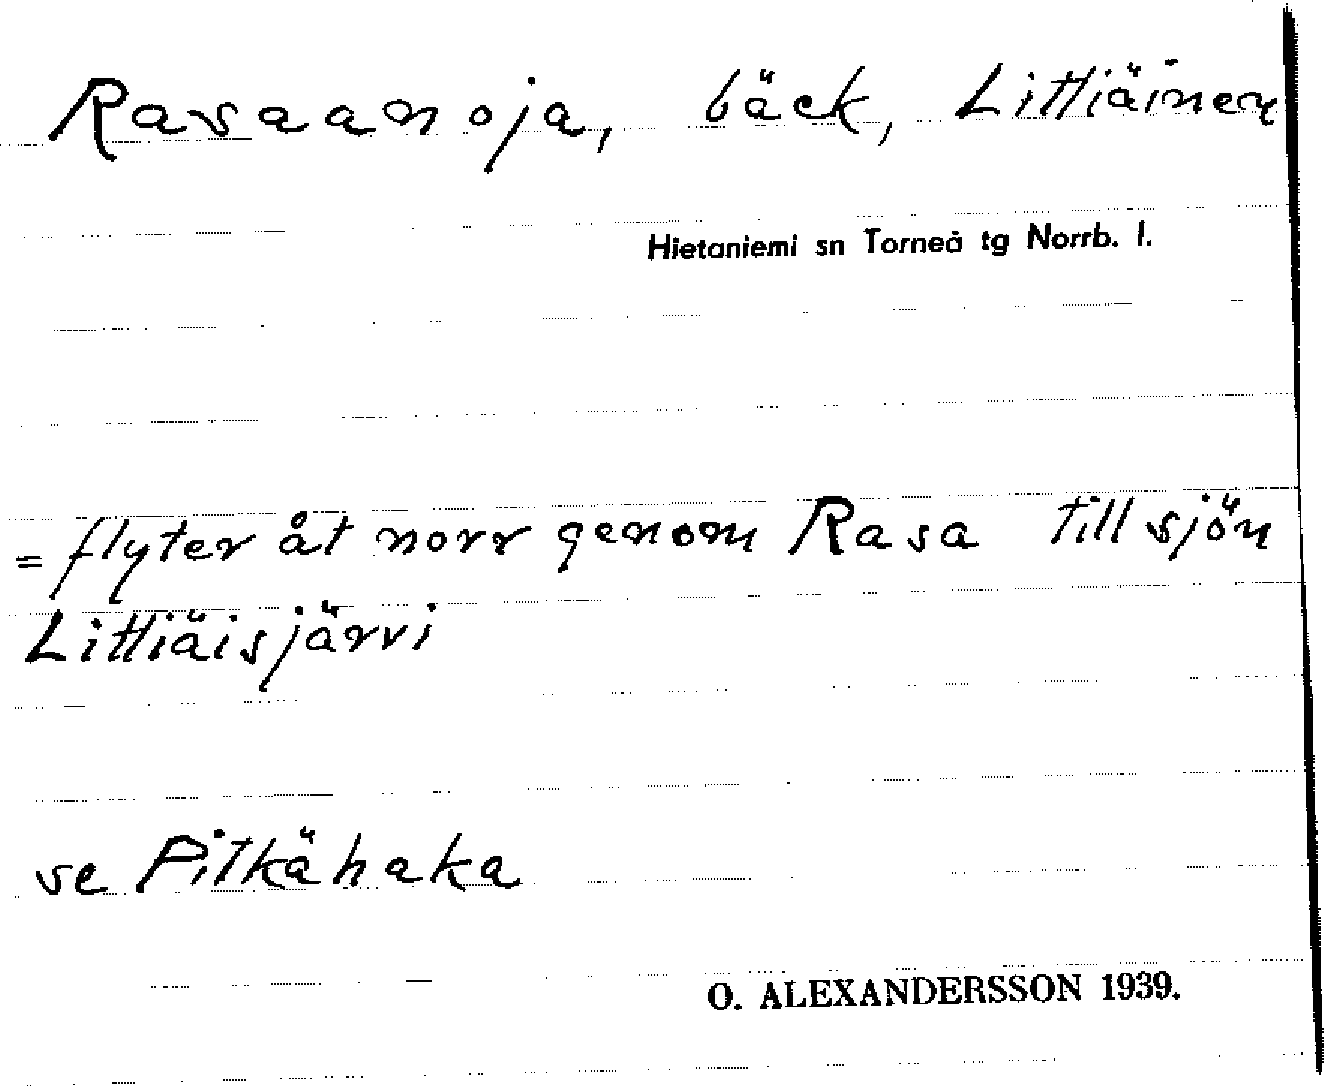 Rasaanoja, bäck, Littiäinen
Hietaniemi sn Torneå tg Norrb. l.
= flyter åt norr genom Rasa till sjön
Littiäisjärvi
se Pitkähaka
O. ALEXANDERSSON 1939.